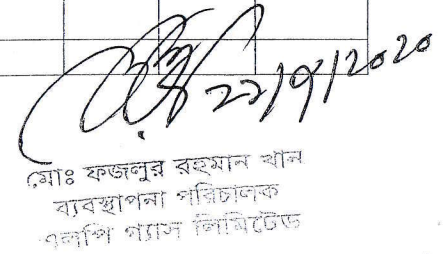 ২২/৭/২০২০
মোঃ ফজলুর রহমান খান
ব্যবস্থাপনা পরিচালক
এলপি গ্যাস লিমিটেড